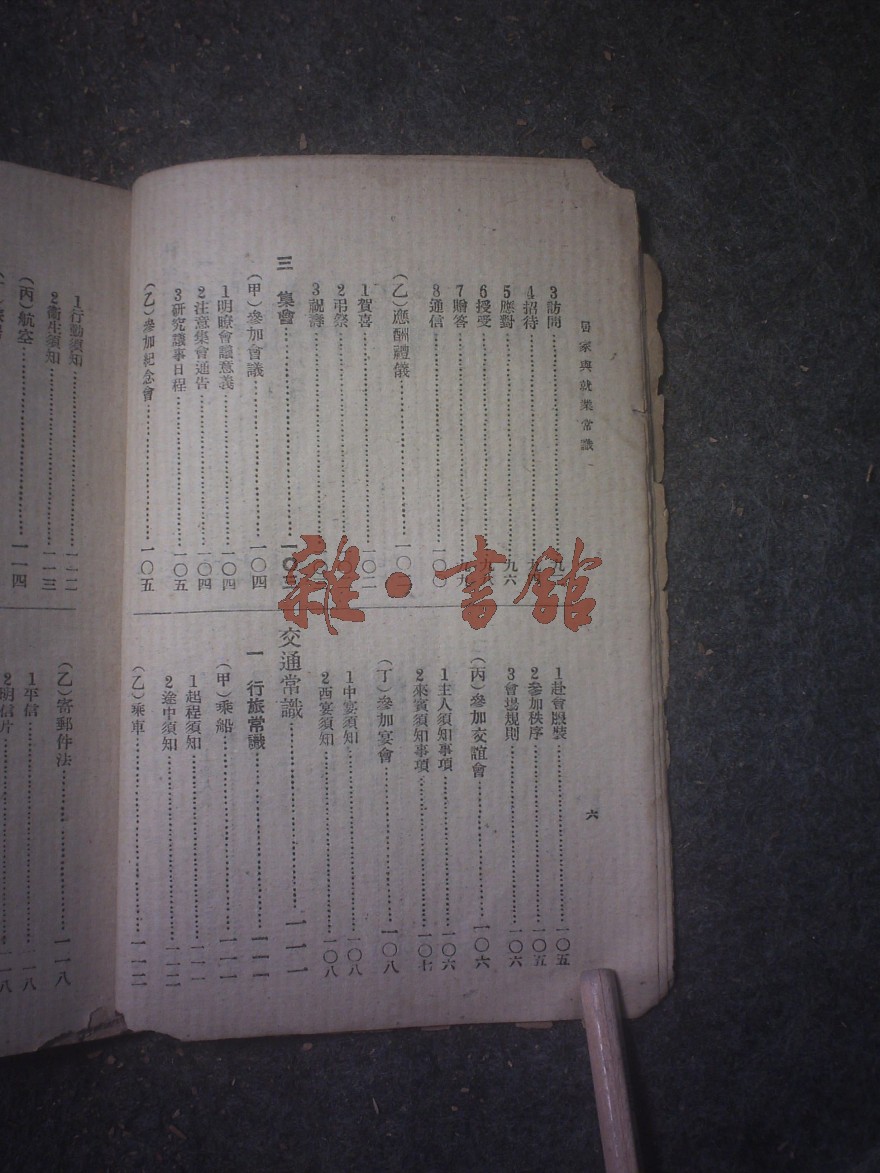 家與就業常識
六
3訪問
4招待
5應對……九六
6授受
7贈答……九九
8通信……一〇〇
(乙)應酬禮儀……一〇
1賀喜……一〇二
2弔祭
3祝壽
三 集會……一〇三
(甲)參加會議……一〇四
1明瞭會議意義……一〇四
2注意集會通告……一〇四
3研究議事日程……一〇五
(乙)參加紀念會……一〇五
1赴會服裝……一〇五
2參加秩序……一〇五
3會場規則……一〇六
(丙)參加交誼會……一〇六
1主人須知事項……一〇六
2來賓須知事項……一〇七
(丁)參加宴會……一〇八
1中宴須知……一〇八
2西宴須知……一〇八
交通常識……一一一
一 行旅常識……一一一
(甲)乘船……一一一
1起程須知……一一一
2途中須知……一一二
(乙)乘車……一一二
1行動須知……一一二
2衞生須知……一一三
(丙)航空……一一四
(乙)寄郵件法……一一八
1平信……一一八
2明信片……一一八
雜·書館